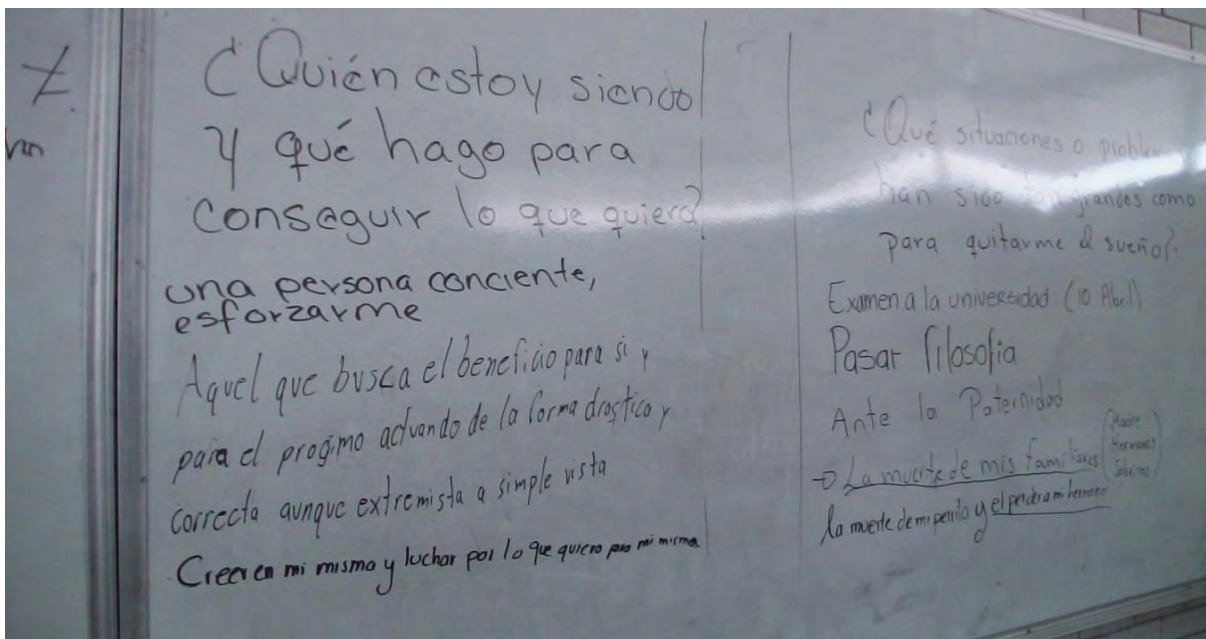 ¿Quién estoy siendo
y qué hago para
conseguir lo que quiero?
una persona conciente,
esforzarme
Aquel que busca el beneficio para si y
para el progimo actuando de la forma drastico y
correcta aunque extremista a simple vista
Creer en mi misma y luchar por lo que quiero para mi misma
¿Qué situaciones o problemas
han sido tan grandes como
para quitarme el sueño?
Examen a la universidad (10 Abril)
Pasar filosofia
Ante la Paternidad
La muerte de mis familiares (Madre
Hermanos
Sobrinos)
la muerte de mi perrito y el perder a mi hermano